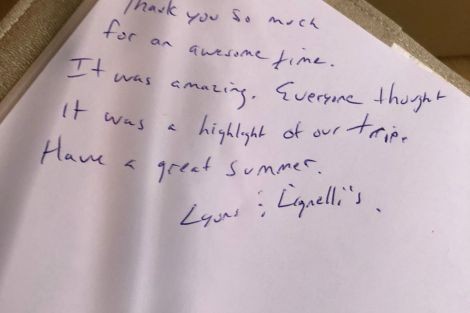 Thank you so much
for an awesome time.
It was amazing. Everyone thought
it was a highlght of our trip.
Have a great summer.
Lyons & Lignelli's.